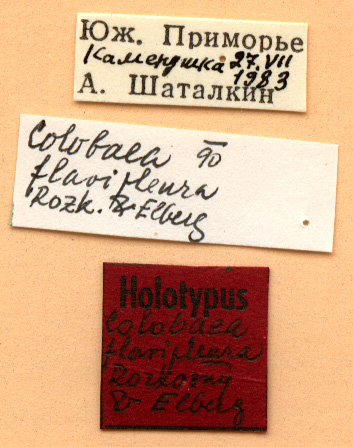 Юж. Приморье
Каменушка 27.VII
1983
А. Шаталкин
Colobaea 90
flavipleura
Rozk. & Elberg
Holotypus
Colobaea
flavipleura
Rozkošný
& Elberg